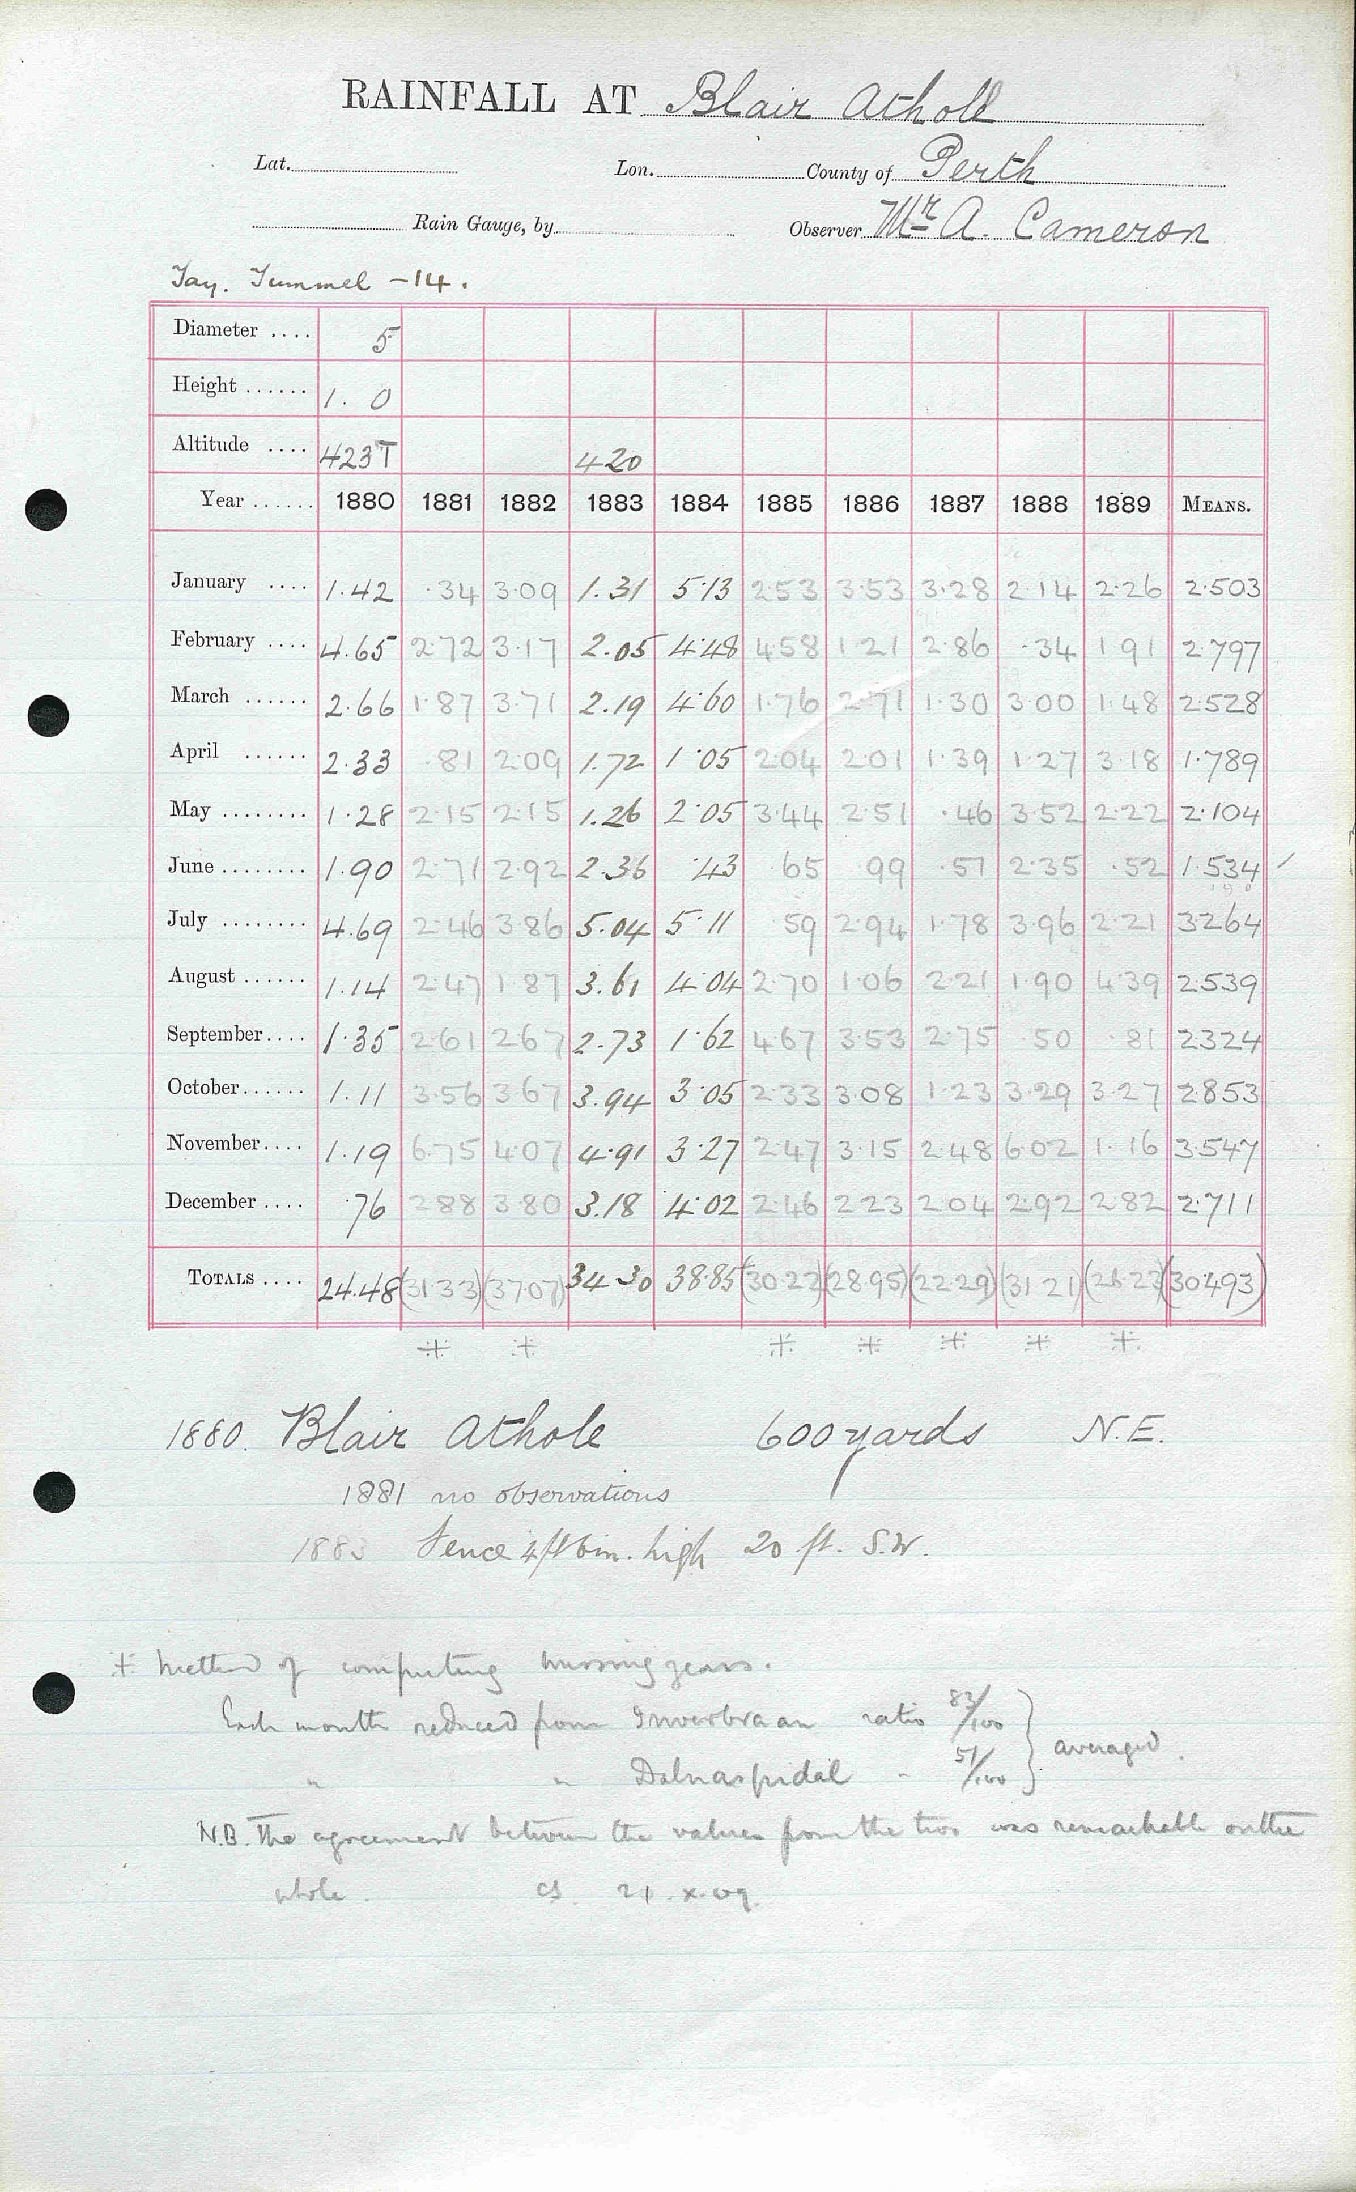 RAINFALL AT Blair Atholl
Lat. Lon. County of Perth
Rain Gauge, by Observer Mr A. Cameron
Tay. Tummel - 14.
Diameter .... 5
Height ...... 1. 0
Altitude .... 423T 420
Year ...... 1880 1881 1882 1883 1884 1885 1886 1887 1888 1889 MEANS.
January .... 1.42 .34 3.09 1.31 5.13 2.53 3.53 3.28 2.14 2.26 2.503
February .... 4.65 2.72 3.17 2.05 4.48 4.58 1.21 2.86 .34 1.91 2.797
March ...... 2.66 1.87 3.71 2.19 4.60 1.76 2.71 1.30 3.00 1.48 2.528
April ...... 2.33 .81 2.09 1.72 1.05 2.04 2.01 1.39 1.27 3.18 1.789
May ........ 1.28 2.15 2.15 1.26 2.05 3.44 2.51 .46 3.52 2.22 2.104
June ........ 1.90 2.71 2.92 2.36 .43 .65 .99 .57 2.35 .52 1.534
July ........ 4.69 2.46 3.86 5.04 5.11 .59 2.94 1.78 3.96 2.21 3.264
August ...... 1.14 2.47 1.87 3.61 4.04 2.70 1.06 2.21 1.90 4.39 2.539
September .... 1.35 2.61 2.67 2.73 1.62 4.67 3.53 2.75 .50 .81 2.324
October ...... 1.11 3.56 3.67 3.94 3.05 2.33 3.08 1.23 3.29 3.27 2.853
November .... 1.19 6.75 4.07 4.91 3.27 2.47 3.15 2.48 6.02 1.16 3.547
December .... .76 2.88 3.80 3.18 4.02 2.46 2.23 2.04 2.92 2.82 2.711
TOTALS .... 24.48 (31.33) (37.07) 34.30 38.85 (30.22) (28.95) (22.29) (31.21) (26.23) (30.493)
1880. Blair Athole 600 yards N.E.
1881 no observations
1883 Fence 4ft 6in. high 20 ft. S.W.
Method of computing missing years.
Each month reduced from Inverbraan ratio 83/100
" " Dalnaspidal " 51/100 } averaged.
N.B. The agreement between the values from the two was remarkable on the
whole. CS 21.X.09.